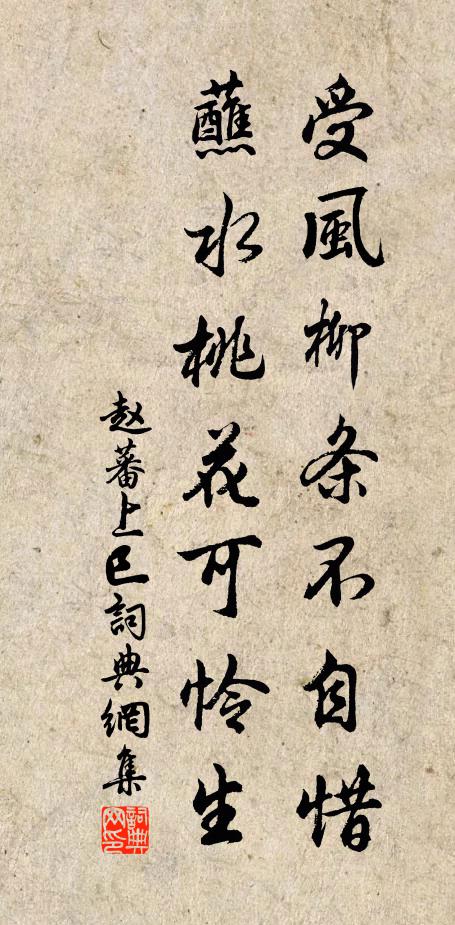 受風柳条不自惜
蘸水桃花可怜生
赵蕃上巳詞典網集
詞典网印